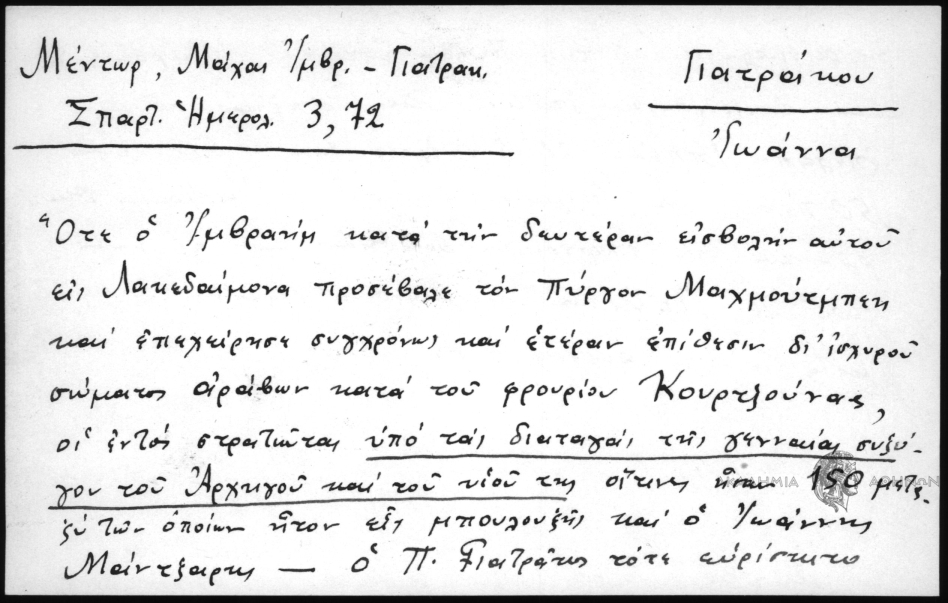 Μέντωρ, Μάχαι Ἰμβρ. – Γιατρακ.
Σπαρτ. Ἡμερολ. 3, 72
Γιατράκου
Ἰωάννα
"Οτε ὁ Ἰμβραήμ κατά τήν δευτέραν εἰσβολήν αὐτοῦ
εἰς Λακεδαίμονα προσέβαλε τόν Πύργον Μαχμούτμπεη
καί ἐπεχείρησε συγχρόνως καί ἑτέραν ἐπίθεσιν δι' ἰσχυροῦ
σώματος ἀράβων κατά τοῦ φρουρίου Κουρτζούνας,
οἱ ἐντός στρατιῶται ὑπό τάς διαταγάς τῆς γενναίας συζύ-
γου τοῦ Ἀρχηγοῦ καί τοῦ υἱοῦ της οἵτινες ἦσαν 150 μετα-
ξύ των ὁποίων ἦτον εἷς μπουλουξῆς καί ὁ Ἰωάννης
Μάντζαρης — ὁ Π. Γιατρᾶκος τότε εὑρίσκετο
ΑΚΑΔΗΜΙΑ ΑΘΗΝΩΝ